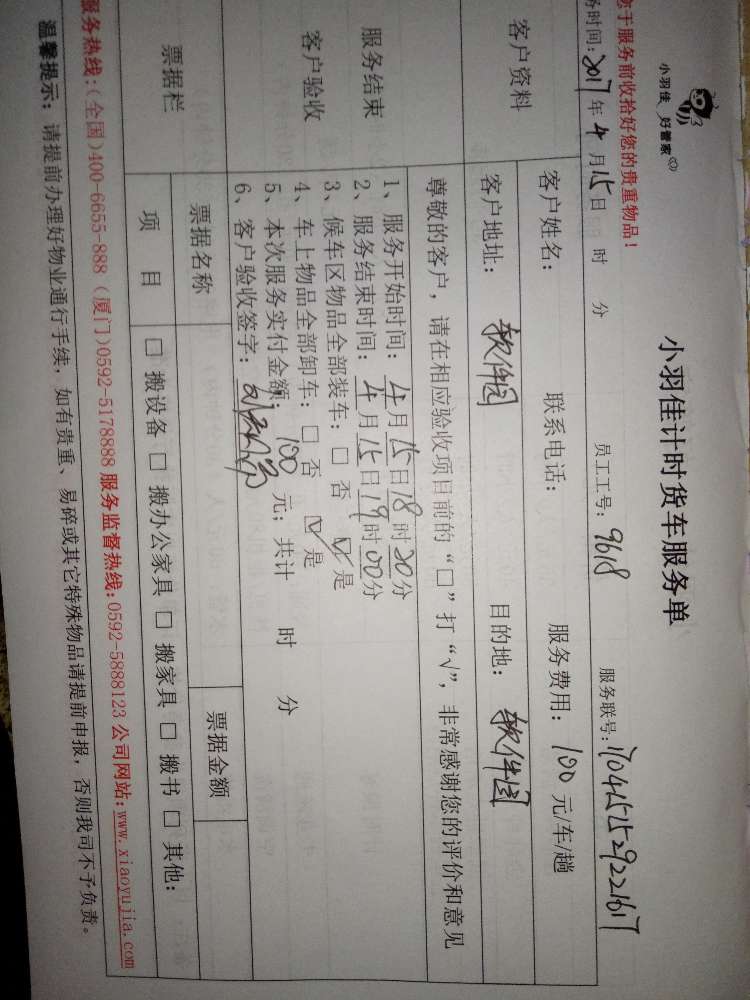 小羽佳 好管家
小羽佳计时货车服务单
于服务前收拾好您的贵重物品！
时间：2017年4月15日 时 分 员工工号：9618 服务联号：
客户资料
客户姓名： 联系电话： 服务费用：100元/车/趟
客户地址：软件园 目的地：软件园
服务结束
客户验收
尊敬的客户，请在相应验收项目前的“□”打“√”，非常感谢您的评价和意见
1、服务开始时间：4月15日18时20分
2、服务结束时间：4月15日19时00分
3、候车区物品全部装车：□ 否 ☑ 是
4、车上物品全部卸车：□ 否 ☑ 是
5、本次服务实付金额：100元；共计 时 分
6、客户验收签字：
票据栏
票据名称 票据金额
项 目 □ 搬设备 □ 搬办公家具 □ 搬家具 □ 搬书 □ 其他：
服务热线：（全国）400-6655-888（厦门）0592-5178888 服务监督热线：0592-5888123 公司网站：www.xiaoyujia.com
温馨提示：请提前办理好物业通行手续，如有贵重、易碎或其它特殊物品请提前申报，否则我司不予负责。